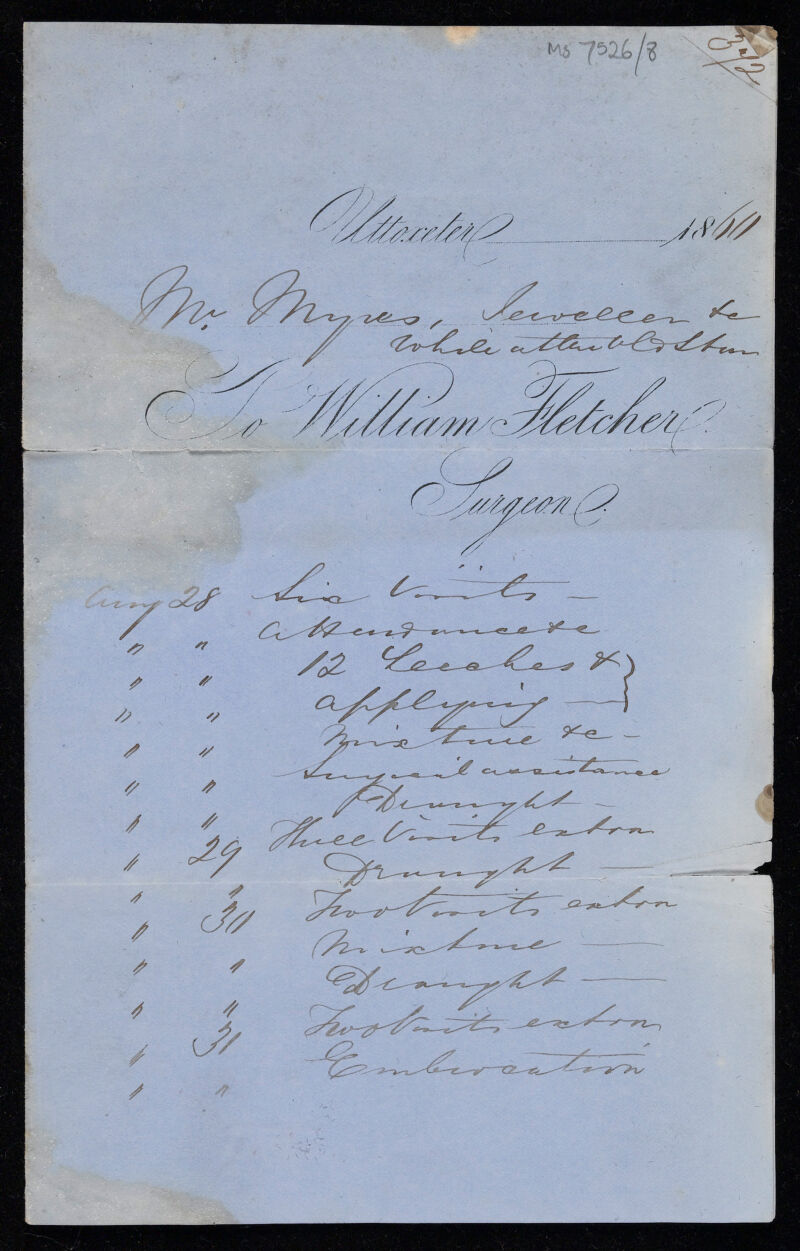 MS 7526/8
Uttoxeter 1860
Mr. Myres, Jeweller &c
while at the Old Star
To William Fletcher.
Surgeon.
Aug 28 Six Visits —
" " Attendance &c
" " 12 Leeches &
" " applying —
" " Mixture &c -
" " Surgical assistance
" " Draught —
" 29 Three Visits extra
" " Draught —
" 30 Two Visits extra
" " Mixture —
" " Draught —
" 31 Two Visits extra
" " Embrocation